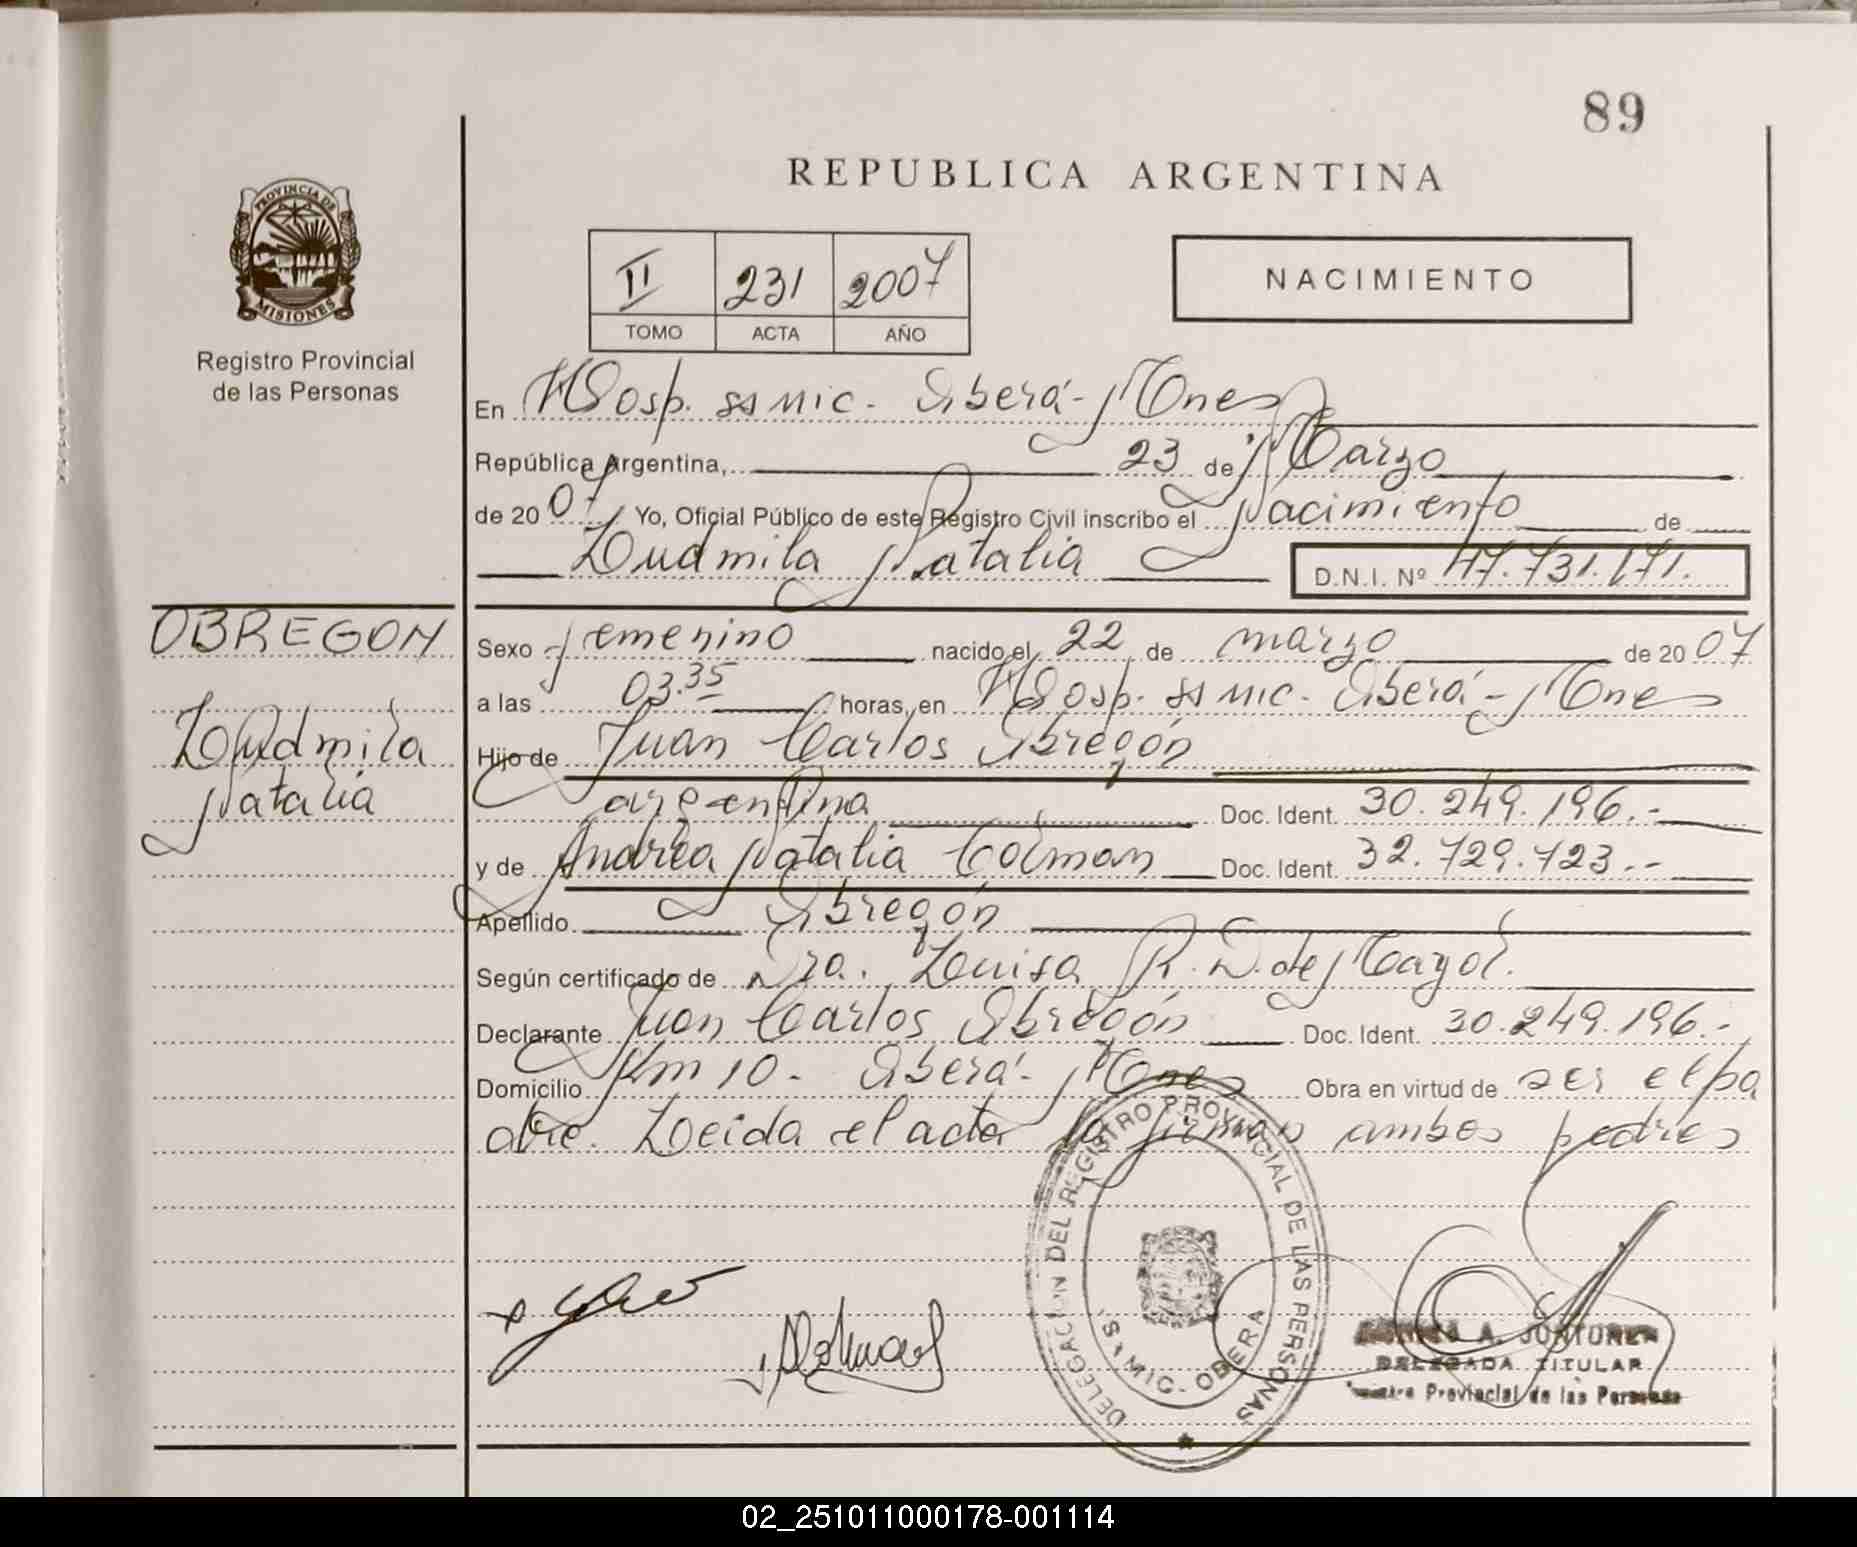 89
REPUBLICA ARGENTINA
PROVINCIA DE
MISIONES
Registro Provincial
de las Personas
II 231 2007
TOMO ACTA AÑO
NACIMIENTO
En Hosp. SAMIC. Oberá - Mnes
República Argentina, 23 de Marzo
de 2007 Yo, Oficial Público de este Registro Civil inscribo el Nacimiento de
Ludmila Natalia D.N.I. Nº 47.731.171.
OBREGON
Ludmila
Natalia
Sexo femenino nacido el 22 de marzo de 2007
a las 03.35 horas, en Hosp. SAMIC. Oberá - Mnes
Hijo de Juan Carlos Obregón
argentina Doc. Ident. 30.249.196.-
y de Andrea Natalia Colman Doc. Ident. 32.729.723.-
Apellido Obregón
Según certificado de Dra. Luisa R. D. de Mayol.
Declarante Juan Carlos Obregón Doc. Ident. 30.249.196.-
Domicilio Km 10 - Oberá - Mnes Obra en virtud de ser el pa
dre. Leida el acta la firman ambos padres
DELEGACION DEL REGISTRO PROVINCIAL DE LAS PERSONAS
SAMIC - OBERA
A.
DELEGADA TITULAR
Provincial de las Personas
02_251011000178-001114